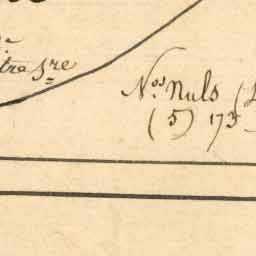 tra Sre
Nos Nuls (
(5) 173